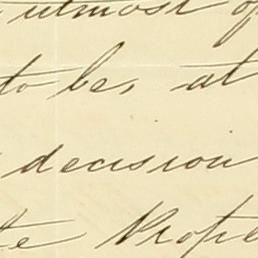 utmost of
to be, at
decision
te Prope